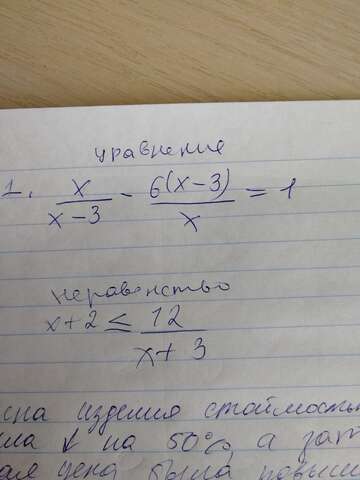 уравнение
1. x/(x-3) - 6(x-3)/x = 1
неравенство
x+2 ≤ 12/(x+3)
изделия стоимость
на 50%, а зат
цена была повыш